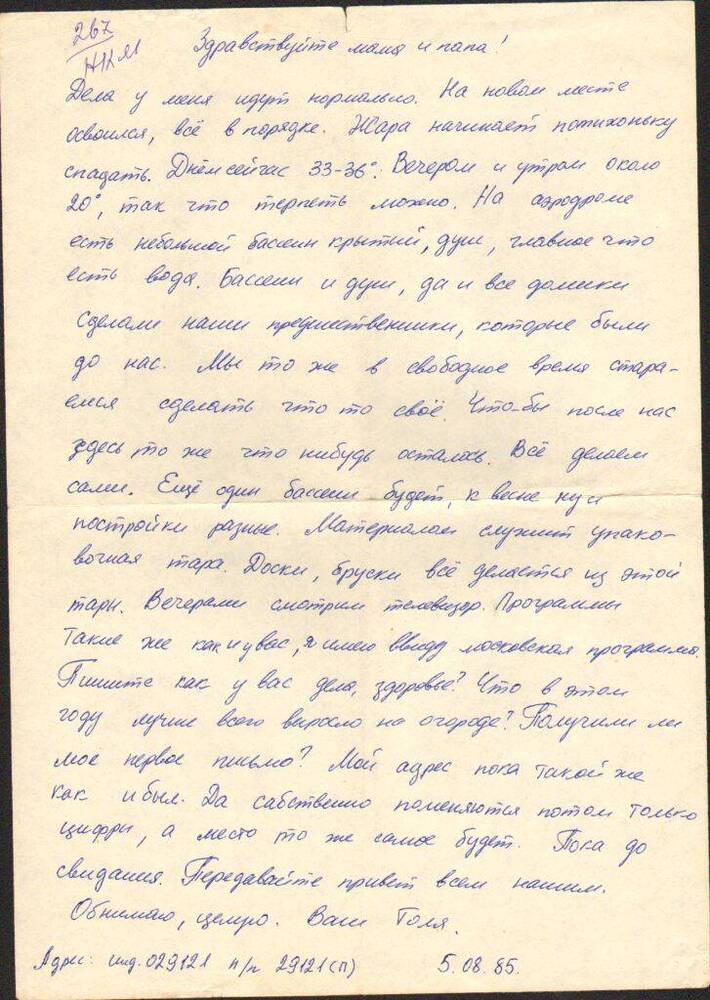 267
НКМ
Здравствуйте мама и папа!
Дела у меня идут нормально. На новом месте
освоился, всё в порядке. Жара начинает потихоньку
спадать. Днём сейчас 33-36°. Вечером и утром около
20°, так что терпеть можно. На аэродроме
есть небольшой бассеин крытый, душ, главное что
есть вода. Бассеин и душ, да и все домики
сделали наши предшественники, которые были
до нас. Мы то же в свободное время стара-
емся сделать что то своё. Что-бы после нас
здесь то же что нибудь осталось. Всё делаем
сами. Ещё один бассеин будет, к весне ну и
постройки разные. Материалом служит упако-
вочная тара. Доски, бруски всё делается из этой
тары. Вечерами смотрим телевизор. Программы
такие же как и у вас, я имею ввиду московская программа.
Пишите как у вас дела, здоровье? Что в этом
году лучше всего выросло на огороде? Получили ли
мое первое письмо? Мой адрес пока такой же
как и был. Да сабственно поменяются потом только
цифры, а место то же самое будет. Пока до
свидания. Передавайте привет всем нашим.
Обнимаю, целую. Ваш Толя.
Адрес: инд. 029121 п/п 29121 (П) 5.08.85.